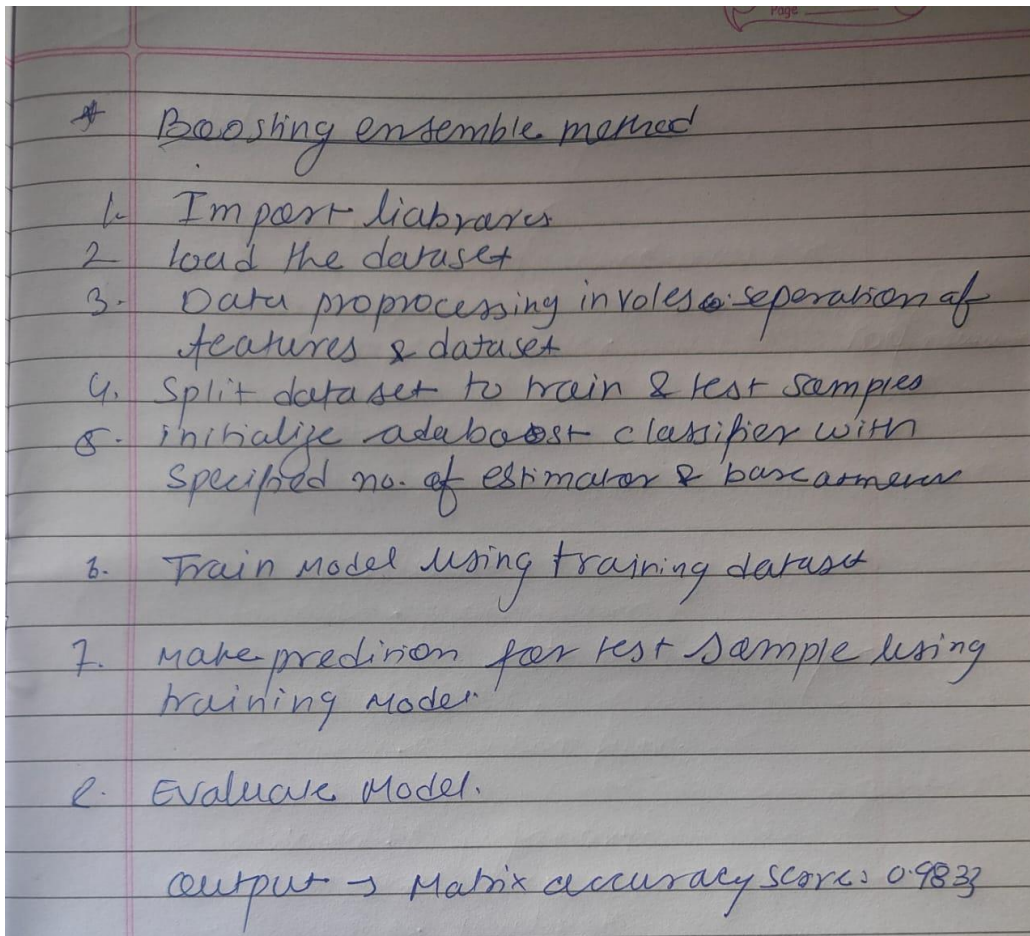 Page
* Boosting ensemble method
1. Import liabrares
2 load the dataset
3. Data proprocessing involes seperation of
features & dataset
4. Split dataset to train & test samples
5. initialize adaboost classifier with
specified no. of estimator & base
6. Train Model using training dataset
7. Make predirion for test sample using
training Model.
8. Evaluate Model.
output → Matrix accuracy score: 0.9833